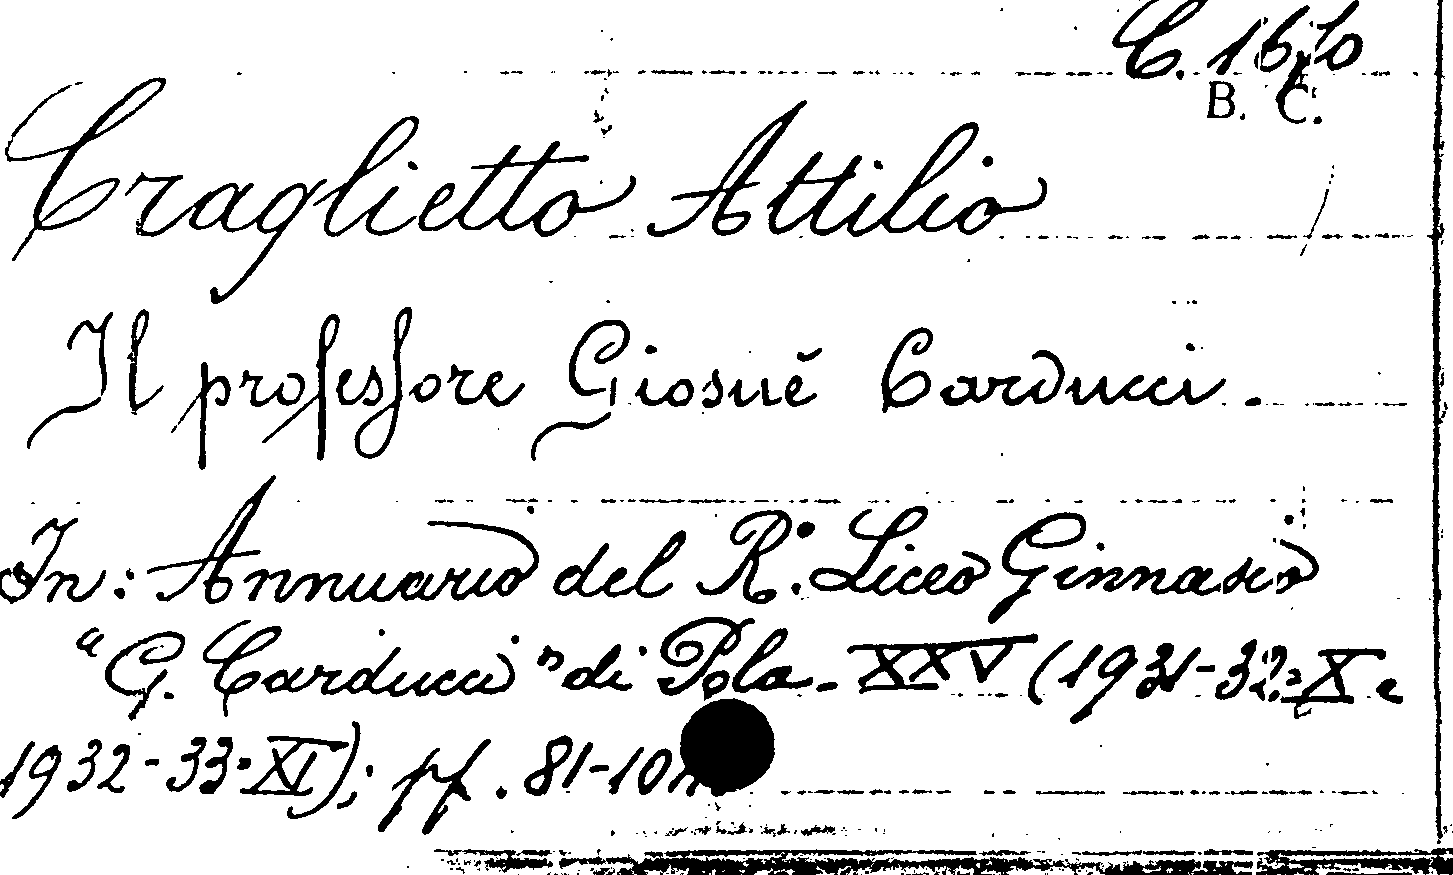 B. C.
Craglietto Attilio
Il professore Giosuè Carducci.
In: Annuario del R.º Liceo Ginnasio
"G. Carducci" di Pola - XXV (1931-32=X e
1932-33=XI); pp. 81-